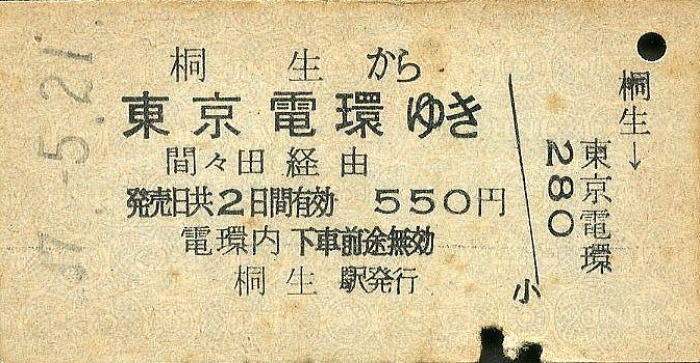 桐生から
東京電環ゆき
間々田経由
発売日共2日間有効 550円
電環内下車前途無効
桐生駅発行
小
桐生→東京電環
280
-5.21